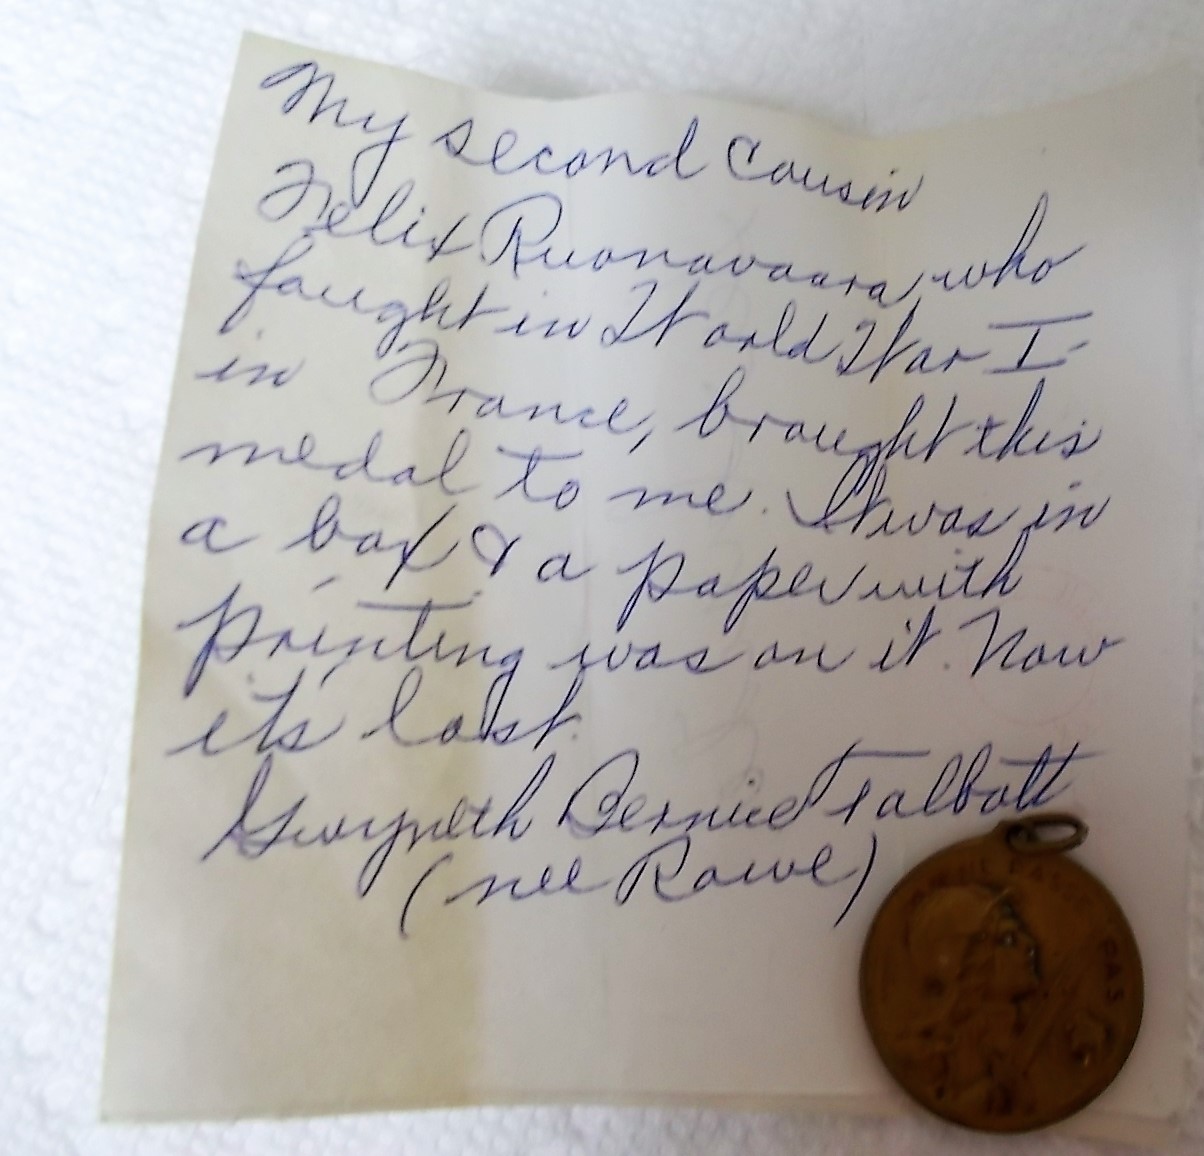 My second Cousin
Felix Ruonavaara who
fought in World War I
in France, brought this
medal to me. It was in
a box & a paper with
printing was on it. Now
it's lost.
Gwyneth Bernice Talbott
(nee Rowe)
CAS